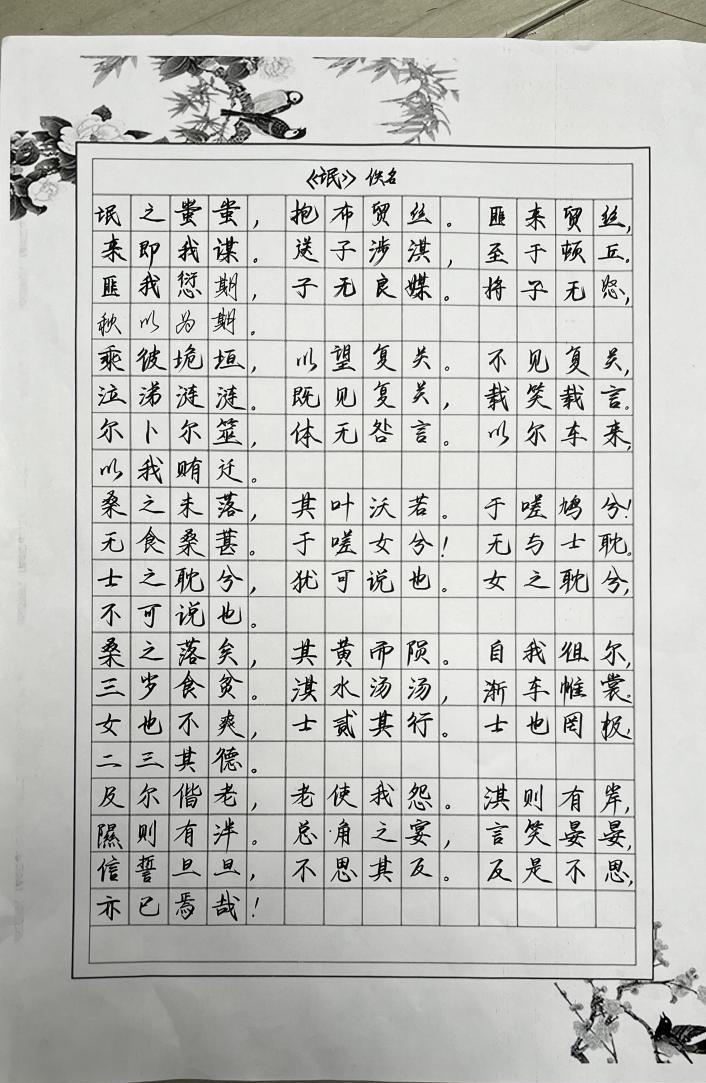 《氓》 佚名
氓之蚩蚩，抱布贸丝。匪来贸丝，
来即我谋。送子涉淇，至于顿丘。
匪我愆期，子无良媒。将子无怒，
秋以为期。
乘彼垝垣，以望复关。不见复关，
泣涕涟涟。既见复关，载笑载言。
尔卜尔筮，体无咎言。以尔车来，
以我贿迁。
桑之未落，其叶沃若。于嗟鸠兮！
无食桑葚。于嗟女兮！无与士耽。
士之耽兮，犹可说也。女之耽兮，
不可说也。
桑之落矣，其黄而陨。自我徂尔，
三岁食贫。淇水汤汤，渐车帷裳。
女也不爽，士贰其行。士也罔极，
二三其德。
反尔偕老，老使我怨。淇则有岸，
隰则有泮。总角之宴，言笑晏晏，
信誓旦旦，不思其反。反是不思，
亦已焉哉！